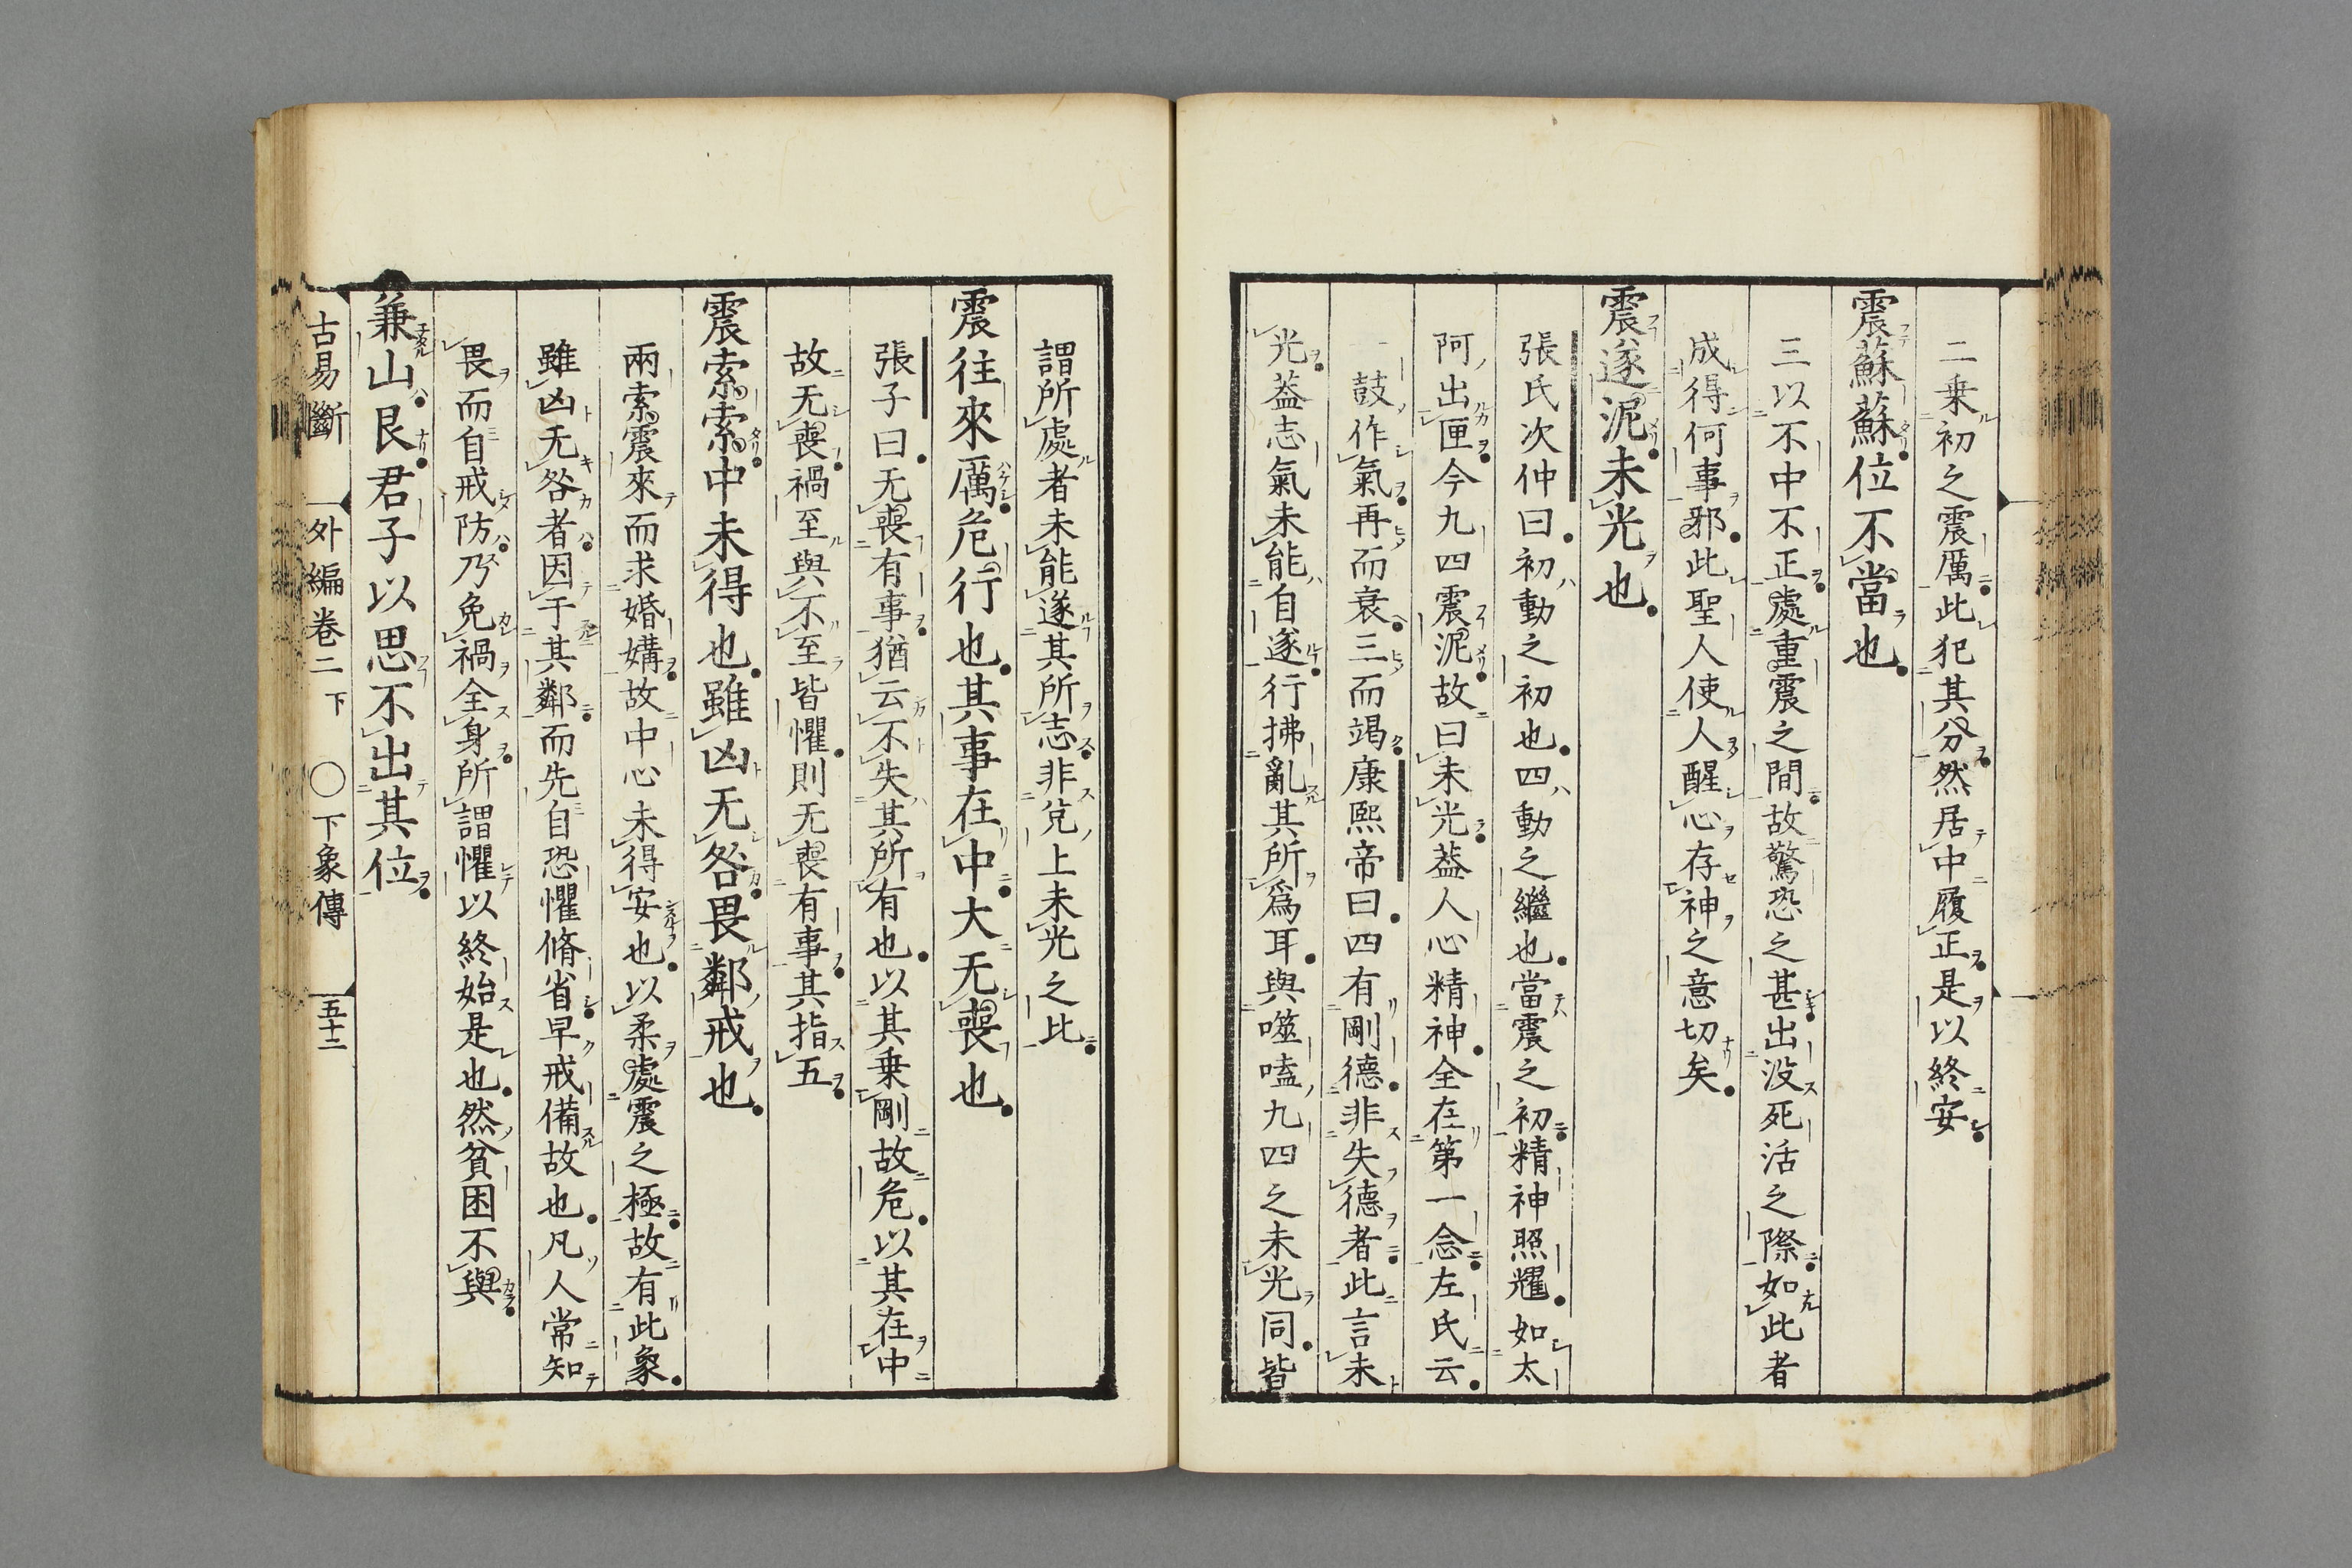 二乗初之震厲此犯其分然居中履正是以終安
震蘇蘇位不當也
三以不中不正處重震之間故驚恐之甚出没死活之際如此者
成得何事邪此聖人使人醒心存神之意切矣
震遂泥未光也
張氏次仲曰初動之初也四動之繼也當震之初精神照耀如太
阿出匣今九四震泥故曰未光葢人心精神全在第一念左氏云
一鼓作氣再而衰三而竭康熙帝曰四有剛德非失德者此言未
光葢志氣未能自遂行拂亂其所爲耳與噬嗑九四之未光同皆
謂所處者未能遂其所志非兌上未光之比
震往來厲危行也其事在中大无喪也
張子曰无喪有事猶云不失其所有也以其乗剛故危以其在中
故无喪禍至與不至皆懼則无喪有事其指五
震索索中未得也雖凶无咎畏鄰戒也
兩索震來而求婚媾故中心未得安也以柔處震之極故有此象
雖凶无咎者因于其鄰而先自恐懼脩省早戒備故也凡人常知
畏而自戒防乃免禍全身所謂懼以終始是也然貧困不與
兼山艮君子以思不出其位
古易斷 外編卷二下 ○下象傳 五十二